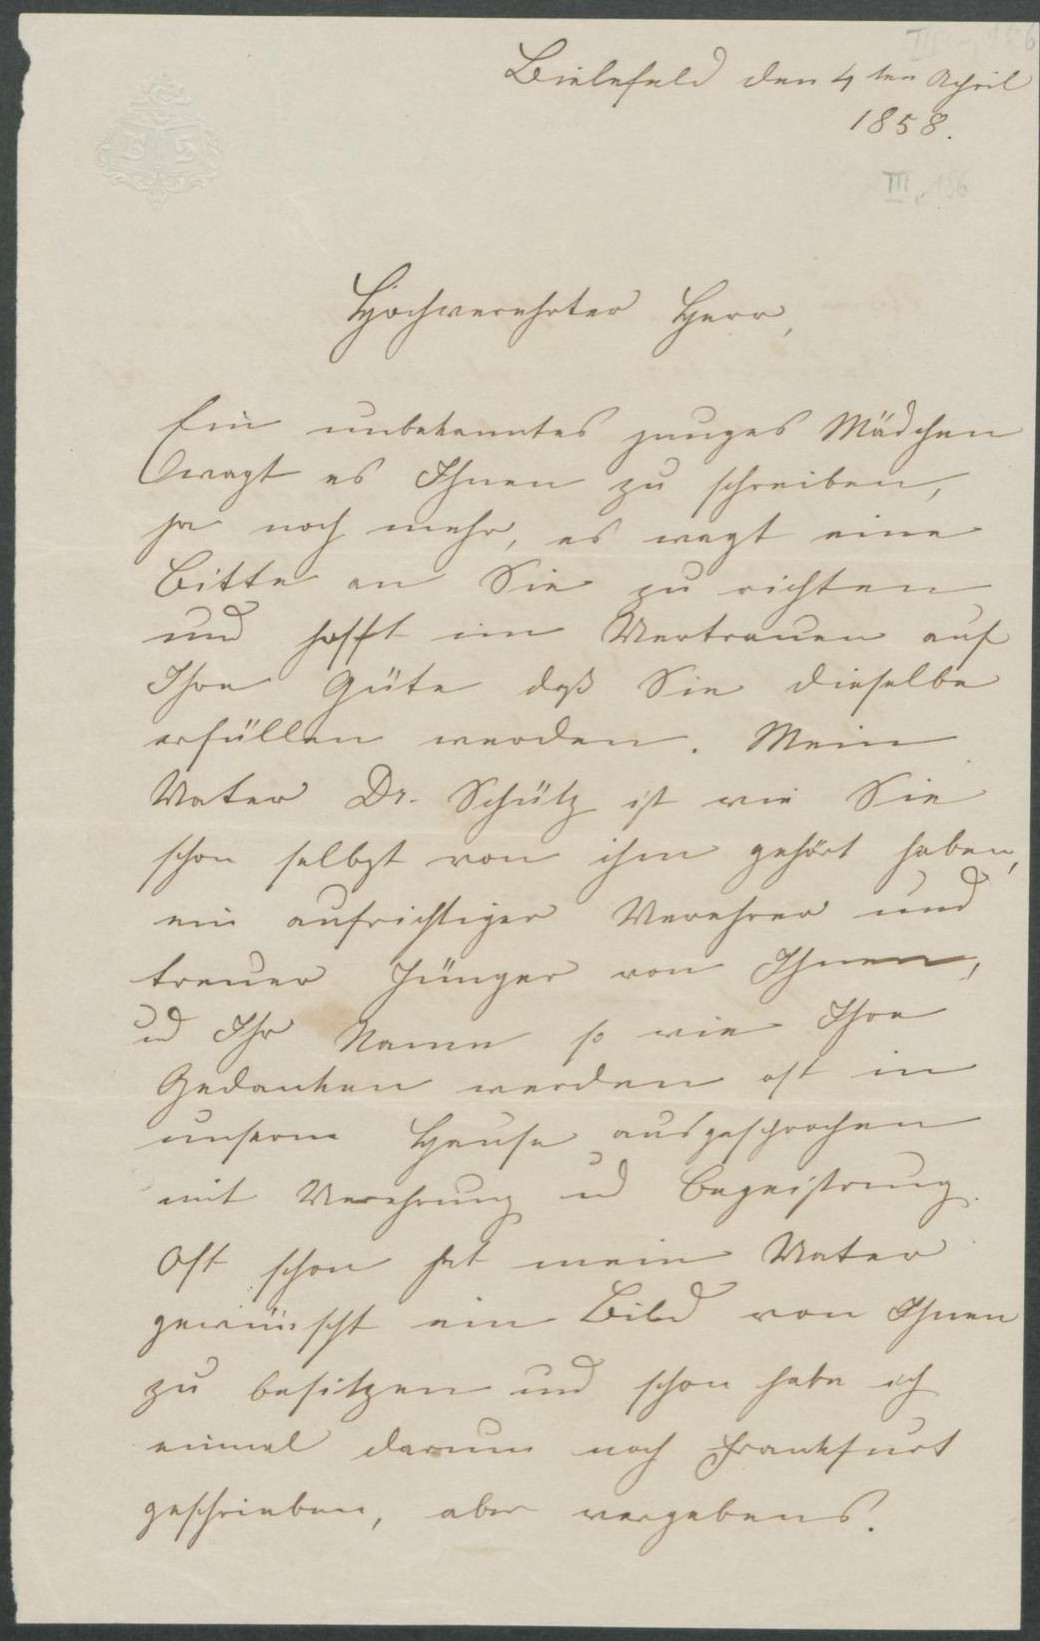 Bielefeld den 4ten April
1858.
III, 186
Hochverehrter Herr,
Ein unbekanntes junges Mädchen
wagt es Ihnen zu schreiben,
ja noch mehr, es wagt eine
Bitte an Sie zu richten
und hofft im Vertrauen auf
Ihre Güte daß Sie dieselbe
erfüllen werden. Mein
Vater Dr. Schütz ist wie Sie
schon selbst von ihm gehört haben,
ein aufrichtiger Verehrer und
treuer Jünger von Ihnen,
ud Ihr Name so wie Ihre
Gedanken werden oft in
unserm Hause ausgesprochen
mit Verehrung ud Begeistrung.
Oft schon hat mein Vater
gewünscht ein Bild von Ihnen
zu besitzen und schon habe ich
einmal darum nach Frankfurt
geschrieben, aber vergebens.